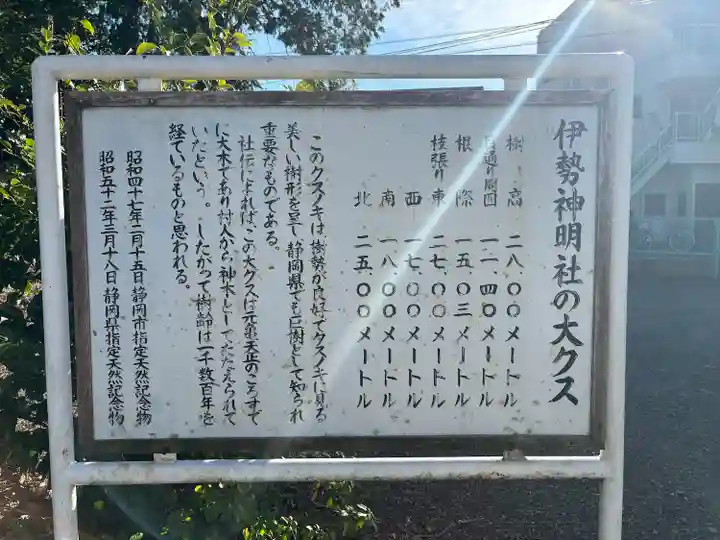 伊勢神明社の大クス
樹高 二八.〇〇メートル
目通り周囲 一一.四〇メートル
根際 一五.〇三メートル
枝張り 東 二七.〇〇メートル
西 一七.〇〇メートル
南 一八.〇〇メートル
北 二五.〇〇メートル
このクスノキは樹勢が良好でクスノキに見る
美しい樹形を呈し静岡県でも巨樹として知られ
重要なものである。
社伝によればこの大クスは元亀天正のころすで
に大木であり村人から神木としてたたえられて
いたという。したがって樹齢は一千数百年を
経ているものと思われる。
昭和四十七年二月十五日静岡市指定天然記念物
昭和五十二年三月十八日静岡県指定天然記念物